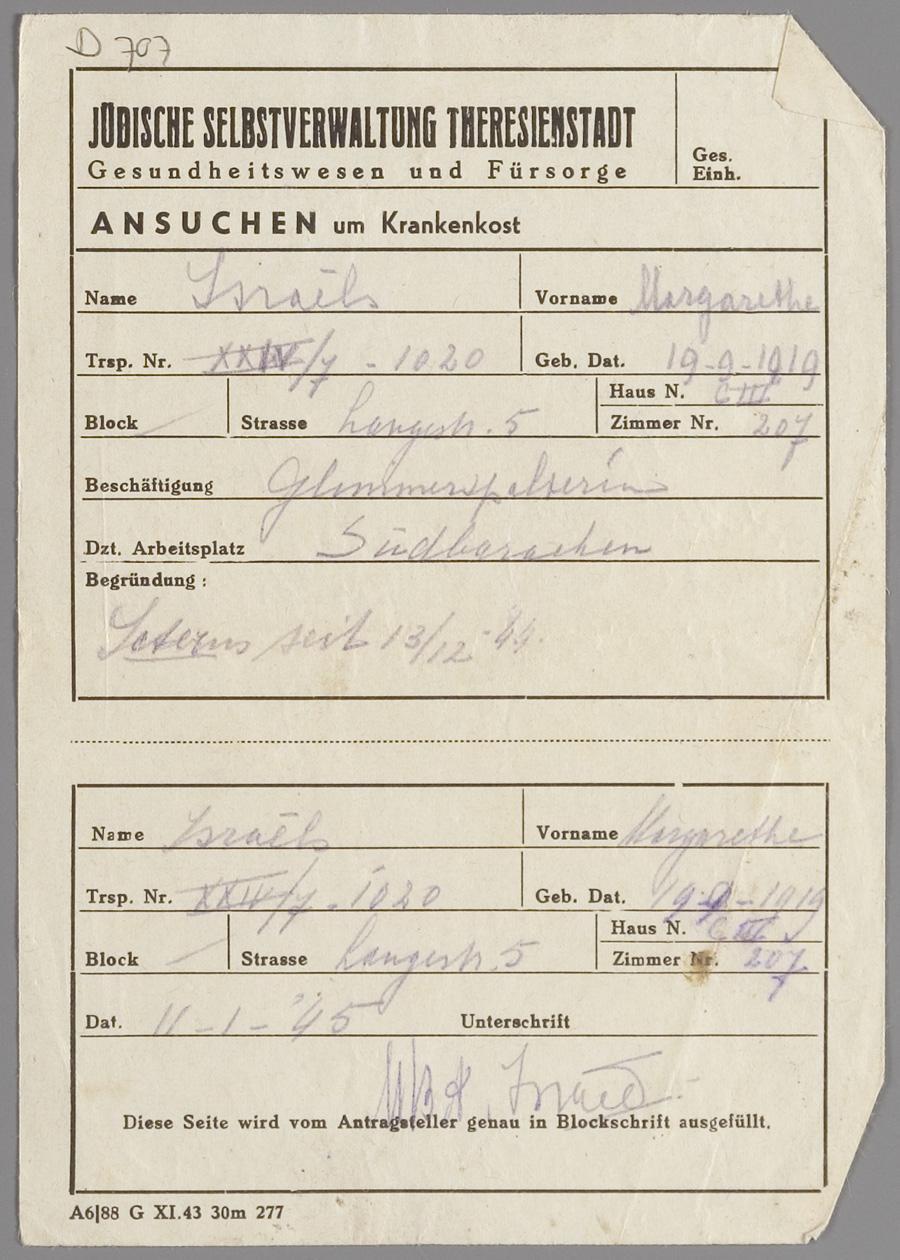 D 707
JÜDISCHE SELBSTVERWALTUNG THERESIENSTADT
Gesundheitswesen und Fürsorge
Ges.
Einh.
ANSUCHEN um Krankenkost
Name Israëls Vorname Margarethe
Trsp. Nr. XXIV/7 - 1020 Geb. Dat. 19-9-1919
Block Strasse Langestr. 5 Haus N. C III
Zimmer Nr. 207
Beschäftigung Glimmerspalterin
Dzt. Arbeitsplatz Südbaracken
Begründung:
Icterus seit 13/12-44.
Name Israëls Vorname Margarethe
Trsp. Nr. XXIV/7 - 1020 Geb. Dat. 19-9-1919
Block Strasse Langestr. 5 Haus N. C III
Zimmer Nr. 207
Dat. 11-1-'45 Unterschrift
Diese Seite wird vom Antragsteller genau in Blockschrift ausgefüllt.
A6|88 G XI.43 30m 277